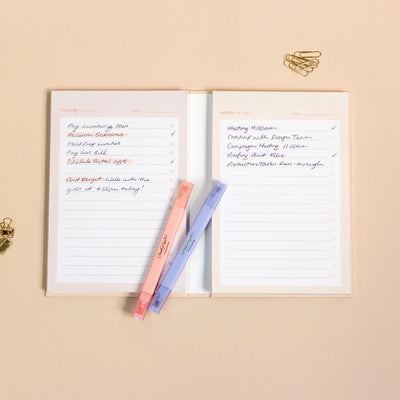 home to do's
Pay Swimming Fees
Vacuum Bedrooms
Meal Prep Lunches
Pay Gas Bill
Schedule Dentist Appt
Don't Forget: Walk with the
girls at 9.00am today!
work to do's
Meeting 9.00am
Catchup with Design Team
Campaign Meeting 11.00am
Briefing
Production Sales Run-through